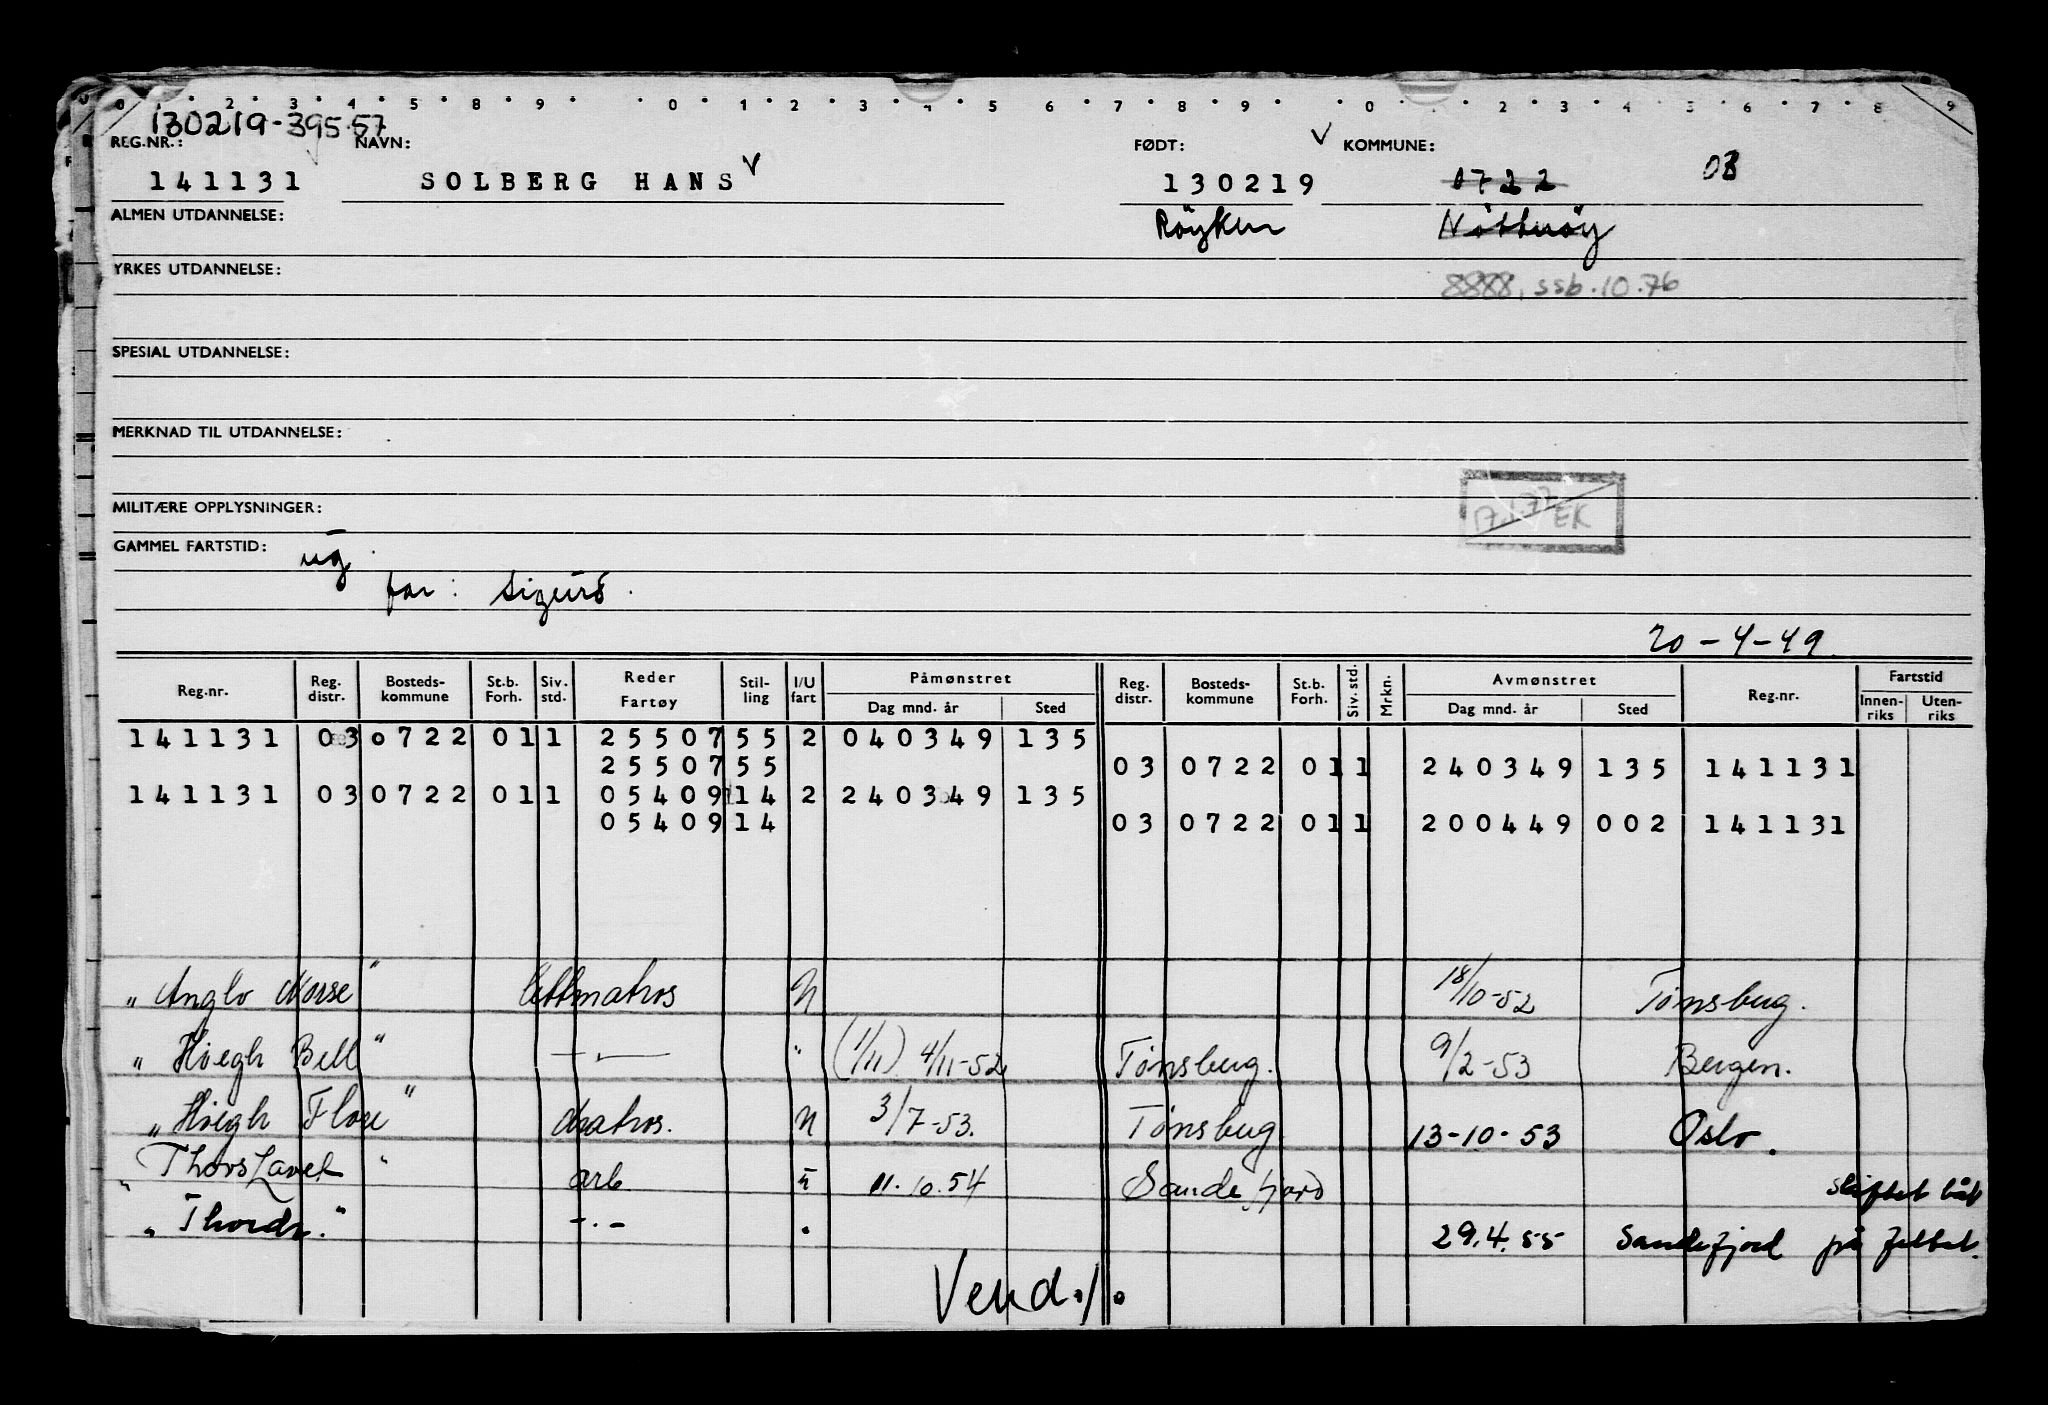 0 . 2 . 3 . 4 . 5 . 8 . 9 . . 0 . 1 . 2 . 3 . 4 . 5 6 . 7 . 8 . 9 . . 0 . . 2 . 3 . 4 . 5 . 6 . 7 . 8 . 9
130219-395.57
REG.NR.: NAVN: FØDT: V KOMMUNE:
141131 SOLBERG HANS V 130219 0722 03
ALMEN UTDANNELSE: Röyken Nötteröy
YRKES UTDANNELSE:
8888, ssb.10.76
SPESIAL UTDANNELSE:
MERKNAD TIL UTDANNELSE:
MILITÆRE OPPLYSNINGER: 17.1.77 EK
GAMMEL FARTSTID: ug.
far: Sigurd.
20-4-49.
Reg.nr. Reg. distr. Bosteds-kommune St.b. Forh. Siv. std. Reder Fartøy Stil-ling I/U fart Påmønstret Dag mnd. år Sted Reg. distr. Bosteds-kommune St.b. Forh. Siv. std. Mrkn. Avmønstret Dag mnd. år Sted Reg.nr. Fartstid Innen-riks Uten-riks
141131 03 0722 01 1 25507 55 2 040349 135
25507 55 03 0722 01 1 240349 135 141131
141131 03 0722 01 1 05409 14 2 240349 135
05409 14 03 0722 01 1 200449 002 141131
"Anglo Norse" lettmatros U 18/10-52 Tønsberg.
"Höegh Bell" -"- " (1/11) 4/11-52 Tønsberg. 9/2-53 Bergen.
"Höegh Flore" Matros. U 3/7-53. Tønsberg. 13-10-53 Oslo.
"Thorshavet" arb. U 11.10.54 Sandefjord skiftet båt
"Thordr." -.- " 29.4.55 Sandefjord på feltet.
Vend./.